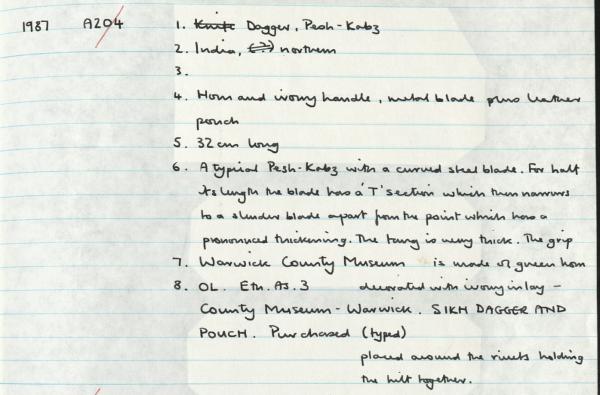 1987 A204 1. Knife Dagger, Pesh-Kabz
2. India, (?) northern
3.
4. Horn and ivory handle, metal blade plus leather
pouch
5. 32cm long
6. A typical Pesh-Kabz with a curved steel blade. For half
its length the blade has a 'T' section which then narrows
to a slender blade apart from the point which has a
pronounced thickening. The tang is very thick. The grip
7. Warwick County Museum is made of green horn
8. OL. Eth. As. 3 decorated with ivory inlay -
County Museum - Warwick. SIKH DAGGER AND
POUCH. Purchased (typed)
placed around the rivets holding
the hilt together.